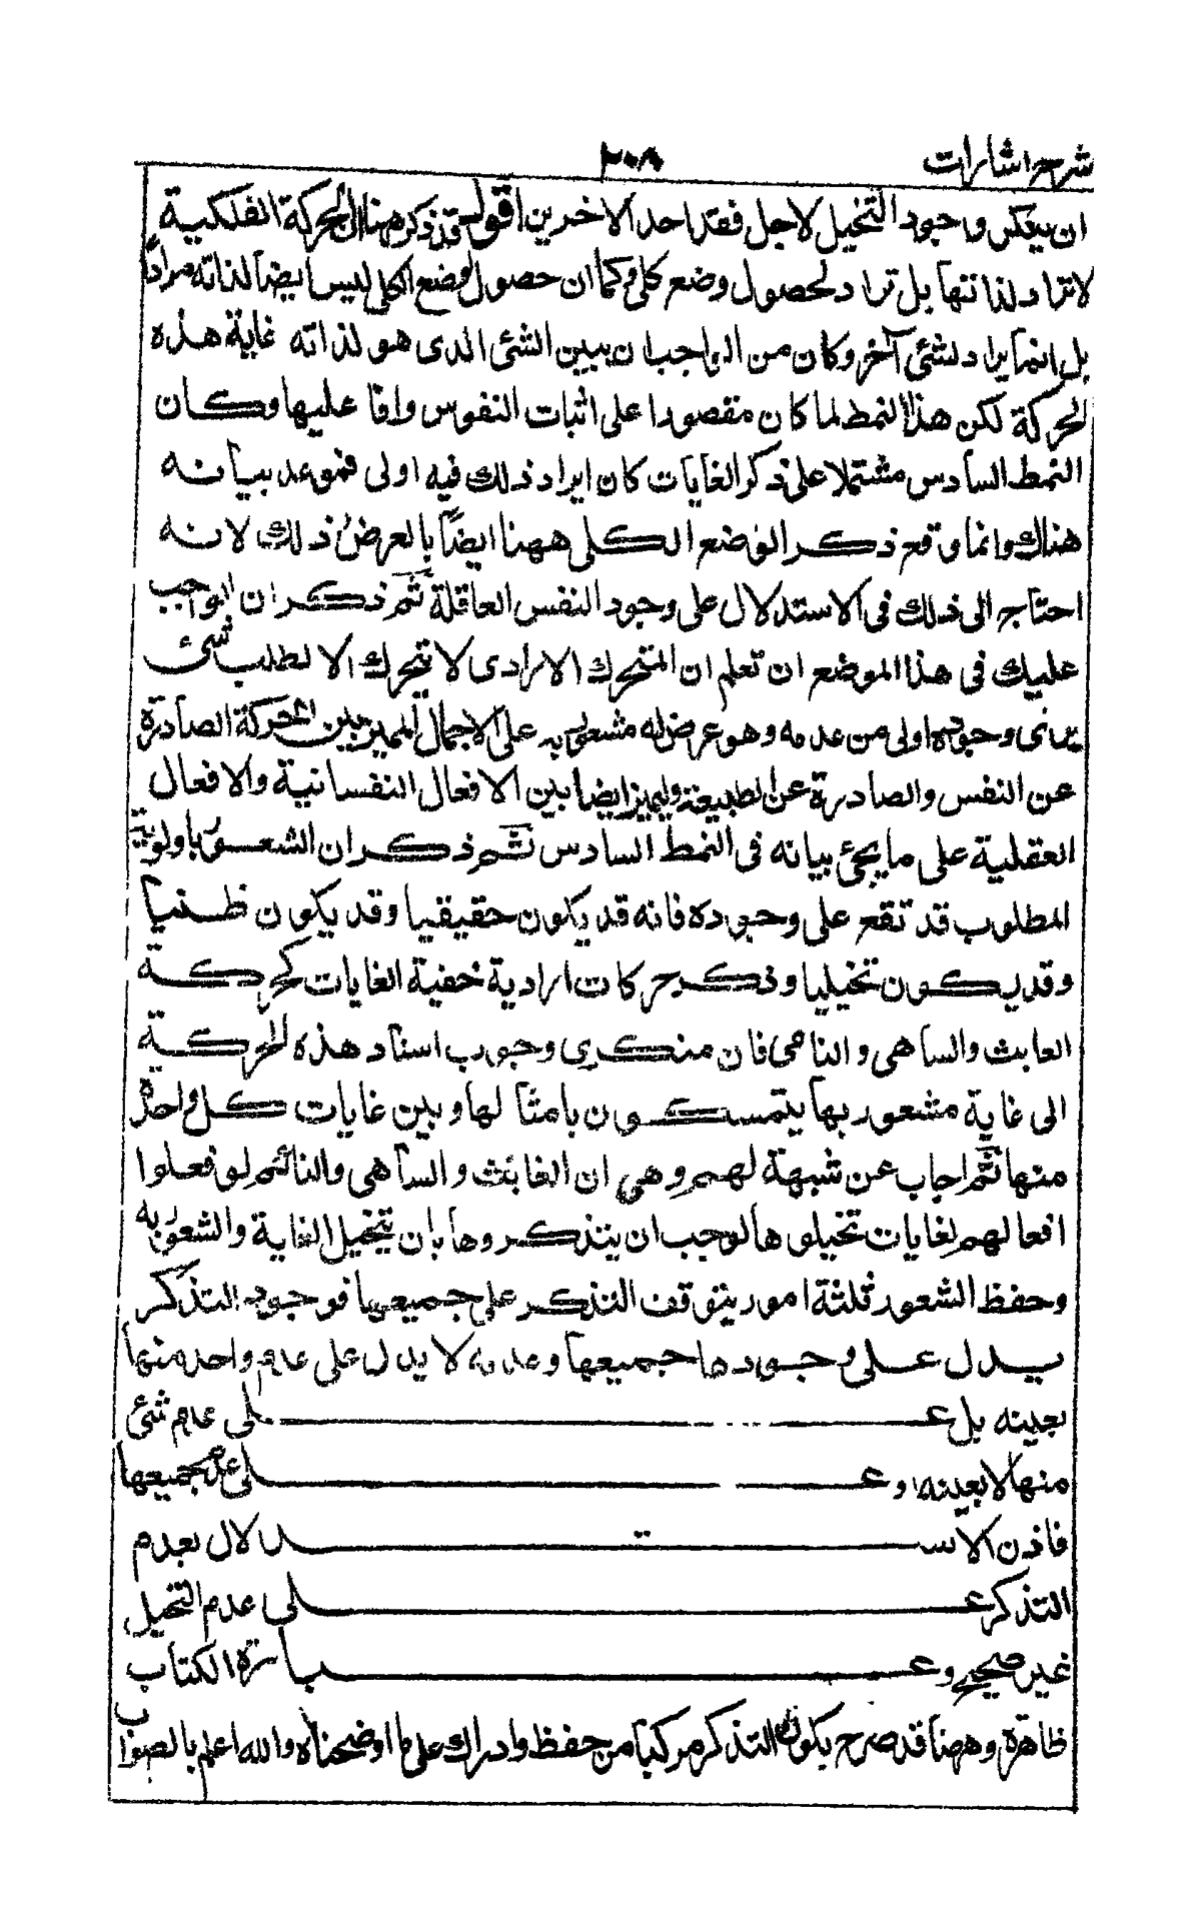 شرح اشارات ٢٠٨
ان ينكر وجود التخيل لاجل فقد احد الاخرين اقول قد ذكر هنا ان الحركة الفلكية
لا تراد لذاتها بل تراد لحصول وضع كلى وكما ان حصول الوضع الكلى ليس ايضا لذاته مرادا
بل انما يراد لشئ آخر وكان من الواجب ان يبين الشئ الذى هو لذاته غاية هذه
الحركة لكن هذا النمط لما كان مقصورا على اثبات النفوس وافا عليها وكان
النمط السادس مشتملا على ذكر الغايات كان ايراد ذلك فيه اولى فموعد بيانه
هناك وانما وقع ذكر الوضع الكلى ههنا ايضا بالعرض ذلك لانه
احتاج الى ذلك فى الاستدلال على وجود النفس العاقلة ثم ذكر ان الواجب
عليك فى هذا الموضع ان تعلم ان المتحرك الارادى لا يتحرك الا لطلب شئ
يرى وجوده اولى من عدمه وهو غرض له مشعور به على الاجمال ليميز بين الحركة الصادرة
عن النفس والصادرة عن الطبيعة وليميز ايضا بين الافعال النفسانية والافعال
العقلية على ما يجئ بيانه فى النمط السادس ثم ذكر ان الشعور باولوية
المطلوب قد تقع على وجوده فانه قد يكون حقيقيا وقد يكون ظنيا
وقد يكون تخيليا وذكر حركات ارادية خفية الغايات كحركة
العابث والساهى والنائم فان منكرى وجوب اسناد هذه الحركة
الى غاية مشعور بها يتمسكون بامثالها وبين غايات كل واحدة
منها ثم اجاب عن شبهة لهم وهي ان العابث والساهى والنائم لو فعلوا
افعالهم لغايات تخيلوها لوجب ان يتذكروها بان تخيل الغاية والشعور به
وحفظ الشعور ثلثة امور يتوقف التذكر على جميعها فوجود التذكر
يدل على وجودها جميعها وعدمه لا يدل على عدم واحد منها
بعينه بل على عدم شئ
منها لا بعينه او على عدم جميعها
فاذن الاستدلال بعدم
التذكر على عدم التخيل
غير صحيح وعبارة الكتاب
ظاهرة وههنا قد صرح بكون التذكر مركبا من حفظ وادراك على ما اوضحناه والله اعلم بالصواب